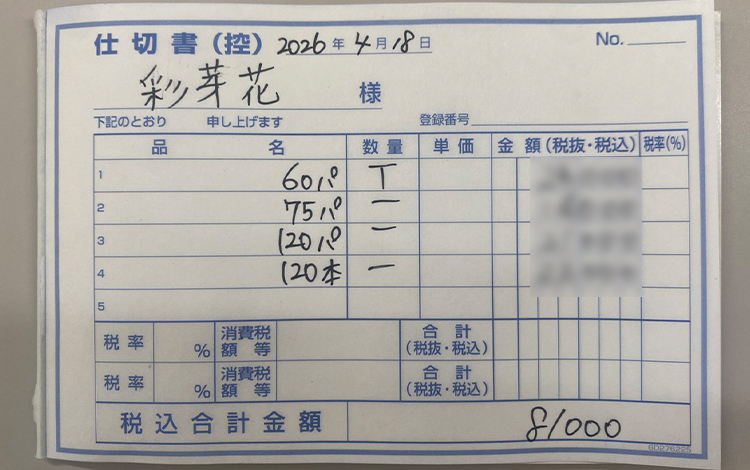 仕切書(控) 2026年4月18日 No.
彩芽花 様
下記のとおり 申し上げます 登録番号
品 名 数量 単価 金額(税抜・税込) 税率(%)
1 60パ T
2 75パ 一
3 120パ 一
4 120本 一
5
税率 % 消費税額等 合計(税抜・税込)
税率 % 消費税額等 合計(税抜・税込)
税込合計金額 81000